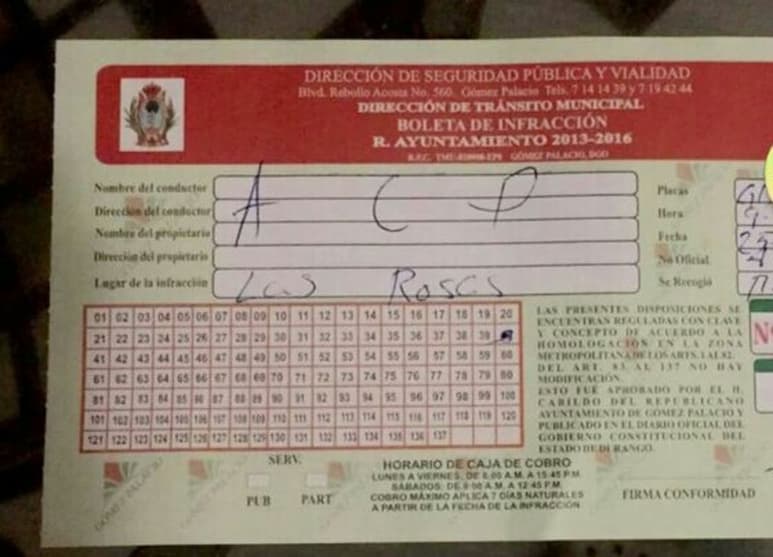 DIRECCIÓN DE SEGURIDAD PÚBLICA Y VIALIDAD
Blvd. Rebollo Acosta No. 560. Gómez Palacio Tels. 7 14 14 39 y 7 19 42 44
DIRECCIÓN DE TRÁNSITO MUNICIPAL
BOLETA DE INFRACCIÓN
R. AYUNTAMIENTO 2013-2016
GÓMEZ PALACIO, DGO
Nombre del conductor
Dirección del conductor
Nombre del propietario
Dirección del propietario
A C P
Lugar de la infracción Las Rosas
Placas
Hora
Fecha
No Oficial
Se Recogió
01 02 03 04 05 06 07 08 09 10 11 12 13 14 15 16 17 18 19 20
21 22 23 24 25 26 27 28 29 30 31 32 33 34 35 36 37 38 39
41 42 43 44 45 46 47 48 49 50 51 52 53 54 55 56 57 58 59 60
61 62 63 64 65 66 67 68 69 70 71 72 73 74 75 76 77 78 79 80
81 82 83 84 85 86 87 88 89 90 91 92 93 94 95 96 97 98 99 100
101 102 103 104 105 106 107 108 109 110 111 112 113 114 115 116 117 118 119 120
121 122 123 124 125 126 127 128 129 130 131 132 133 134 135 136 137
LAS PRESENTES DISPOSICIONES SE
ENCUENTRAN REGULADAS CON CLAVE
Y CONCEPTO DE ACUERDO A LA
HOMOLOGACIÓN EN LA ZONA
METROPOLITANA DE LOS ARTS. 1 AL 82.
DEL ART. 83 AL 137 NO HAY
MODIFICACIÓN.
ESTO FUE APROBADO POR EL H.
CABILDO DEL REPUBLICANO
AYUNTAMIENTO DE GÓMEZ PALACIO Y
PUBLICADO EN EL DIARIO OFICIAL DEL
GOBIERNO CONSTITUCIONAL DEL
ESTADO DE DURANGO.
SERV.
PUB PART
HORARIO DE CAJA DE COBRO
LUNES A VIERNES, DE 8:00 A.M. A 15:45 P.M.
SÁBADOS: DE 9:00 A.M. A 12:45 P.M.
COBRO MÁXIMO APLICA 7 DÍAS NATURALES
A PARTIR DE LA FECHA DE LA INFRACCIÓN
FIRMA CONFORMIDAD
GÓMEZ PALACIO